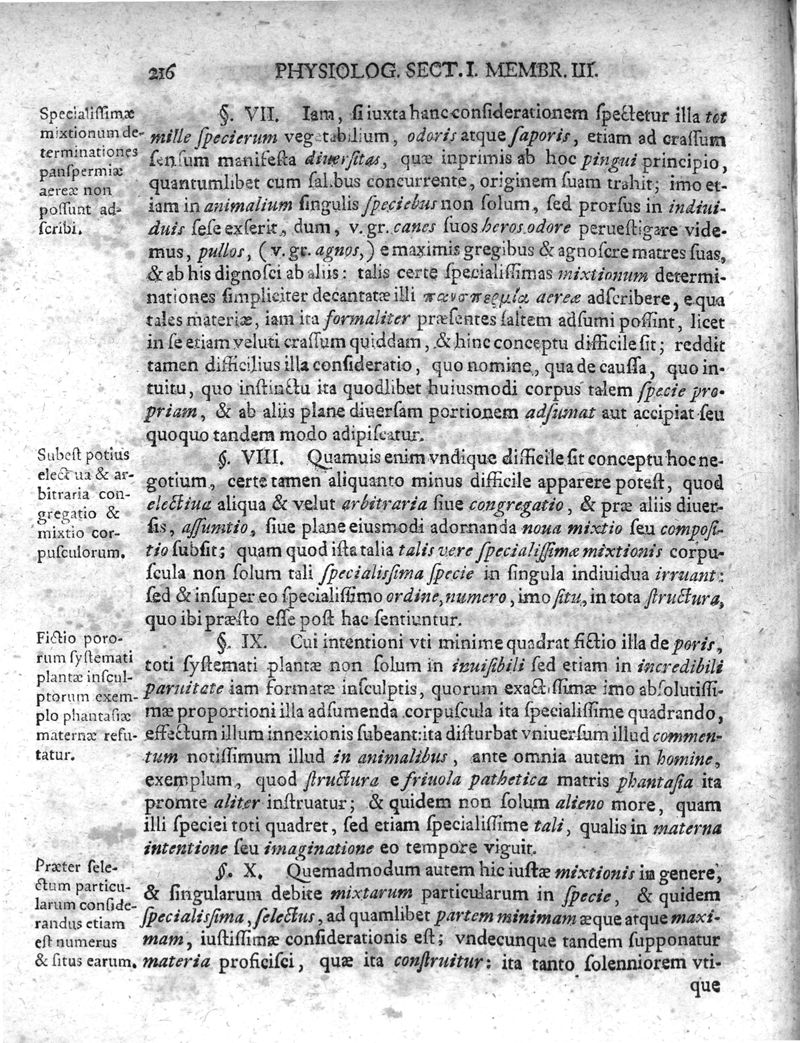 216 PHYSIOLOG. SECT. I. MEMBR. III.
Specialiſſimæ
mixtionum de-
terminationes
panſpermiæ
aereæ non
poſſunt ad-
ſcribi.
§. VII. Iam, ſi iuxta hanc conſiderationem ſpectetur illa tot
mille ſpecierum vegetabilium, odoris atque ſaporis, etiam ad craſſum
ſenſum manifeſta diuerſitas, quæ inprimis ab hoc pingui principio,
quantumlibet cum ſalibus concurrente, originem ſuam trahit; imo et-
iam in animalium ſingulis ſpeciebus non ſolum, ſed prorſus in indiui-
duis ſeſe exſerit, dum, v. gr. canes ſuos heros odore perueſtigare vide-
mus, pullos, (v. gr. agnos,) e maximis gregibus & agnoſcere matres ſuas,
& ab his dignoſci ab aliis: talis certe ſpecialiſſimas mixtionum determi-
nationes ſimpliciter decantatæ illi πανσπερμίᾳ aereæ adſcribere, e qua
tales materiæ, iam ita formaliter præſentes ſaltem adſumi poſſint, licet
in ſe etiam veluti craſſum quiddam, & hinc conceptu difficile ſit; reddit
tamen difficilius illa conſideratio, quo nomine, qua de cauſſa, quo in-
tuitu, quo inſtinctu ita quodlibet huiusmodi corpus talem ſpecie pro-
priam, & ab aliis plane diuerſam portionem adſumat aut accipiat ſeu
quoquo tandem modo adipiſcatur.
Subeſt potius
electiua & ar-
bitraria con-
gregatio &
mixtio cor-
puſculorum.
§. VIII. Quamuis enim vndique difficile ſit conceptu hoc ne-
gotium, certe tamen aliquanto minus difficile apparere poteſt, quod
electiua aliqua & velut arbitraria ſiue congregatio, & præ aliis diuer-
ſis, aſſumtio, ſiue plane eiusmodi adornanda noua mixtio ſeu compoſi-
tio ſubſit; quam quod iſta talia talis vere ſpecialiſſimæ mixtionis corpu-
ſcula non ſolum tali ſpecialiſſima ſpecie in ſingula indiuidua irruant:
ſed & inſuper eo ſpecialiſſimo ordine, numero, imo ſitu, in tota ſtructura,
quo ibi præſto eſſe poſt hac ſentiuntur.
Fictio poro-
rum ſyſtemati
plantæ inſcul-
ptorum exem-
plo phantaſiæ
maternæ refu-
tatur.
§. IX. Cui intentioni vti minime quadrat fictio illa de poris,
toti ſyſtemati plantæ non ſolum in inuiſibili ſed etiam in incredibili
paruitate iam formatæ inſculptis, quorum exactiſſimæ imo abſolutiſſi-
mæ proportioni illa adſumenda corpuſcula ita ſpecialiſſime quadrando,
effectum illum innexionis ſubeant: ita diſturbat vniuerſum illud commen-
tum notiſſimum illud in animalibus, ante omnia autem in homine,
exemplum, quod ſtructura e friuola pathetica matris phantaſia ita
promte aliter inſtruatur; & quidem non ſolum alieno more, quam
illi ſpeciei toti quadret, ſed etiam ſpecialiſſime tali, qualis in materna
intentione ſeu imaginatione eo tempore viguit.
Præter ſele-
ctum particu-
larum conſide-
randus etiam
eſt numerus
& ſitus earum.
§. X. Quemadmodum autem hic iuſtæ mixtionis in genere,
& ſingularum debite mixtarum particularum in ſpecie, & quidem
ſpecialiſſima, ſelectus, ad quamlibet partem minimam æque atque maxi-
mam, iuſtiſſimæ conſiderationis eſt; vndecunque tandem ſupponatur
materia proficiſci, quæ ita conſtruitur: ita tanto ſolenniorem vti-
que